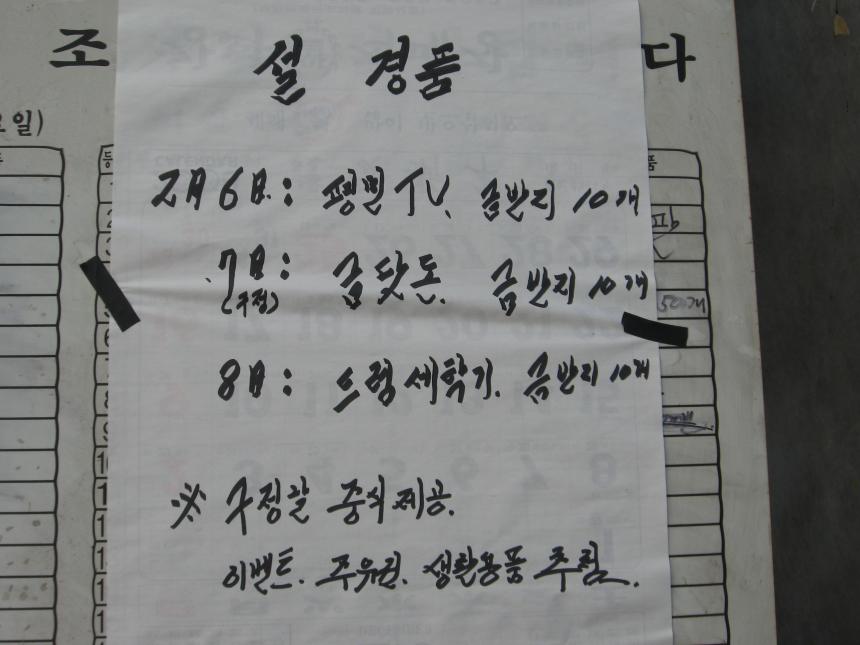 조 다
설 경품
요일)
2月 6日: 평면TV. 금반지 10개
7日: 금닷돈. 금반지 10개
(구정)
50개
8日: 드럼세탁기. 금반지 10개
※ 구정날 중식제공.
이벤트. 주유권. 생활용품 추첨.